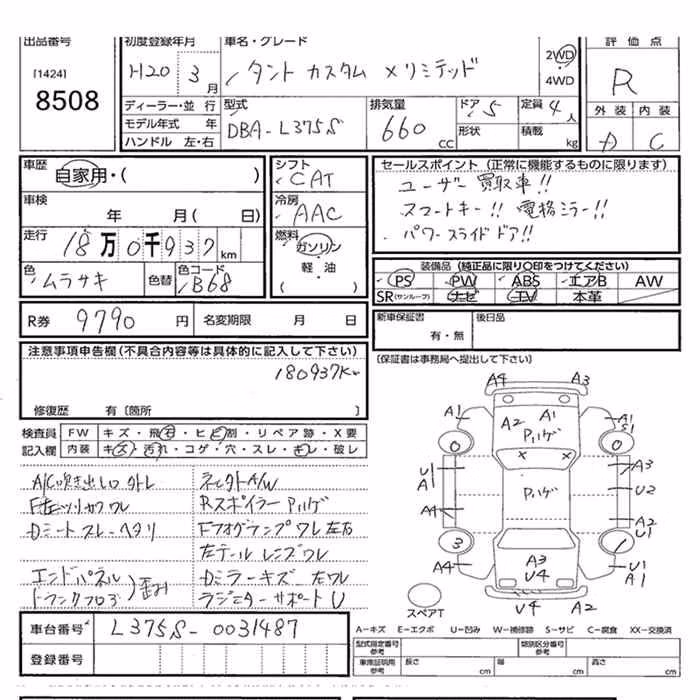 出品番号
[1424]
8508
初度登録年月
H20 3月
車名・グレード
タント カスタム Xリミテッド
2WD・4WD
評価点
R
外装 内装
A C
ディーラー・並 行
モデル年式 年
ハンドル 左・右
型式
DBA-L375S
排気量
660 CC
ドア 5
形状
定員 4人
積載 kg
車歴
自家用・( )
車検
年 月( 日)
走行
18万0千937km
色
ムラサキ
色替
色コード
B68
シフト
CAT
冷房
AAC
燃料
ガソリン
軽・油
( )
セールスポイント (正常に機能するものに限ります)
ユーザー買取車!!
スマートキー!! 電格ミラー!!
パワースライドドア!!
装備品 (純正品に限り○印をつけてください)
PS PW ABS エアB AW
SR(サンルーフ) ナビ TV 本革
R券 9790円
名変期限 月 日
新車保証書
有・無
後日品
[保証書は事務局へ提出して下さい]
注意事項申告欄(不具合内容等は具体的に記入して下さい)
180937Km
修復歴 有〔箇所 〕
検査員記入欄
FW キズ・飛石・ヒビ割・リペア跡・X要
内装 キズ・汚れ・コゲ・穴・スレ・キレ・破レ
A/C吹き出し口 外レ
Dシートスレ・ヘタリ
エンドパネル
トランクフロア
歪み
Rスポイラー Aハゲ
Fフォグランプワレ左右
左テールレンズワレ
Dミラーキズ 左ワレ
ラジエターサポートU
A4 A3
A1 A2 A1 A1
S1
Aハゲ
0 0
× ×
U1 A3
A1 Aハゲ U2
A4 A2
U1
3 1
A4 A3 U1
U4 A1
スペアT
U4 A2
A-キズ E-エクボ U-凹み W-補修跡 S-サビ C-腐食 XX-交換済
車台番号
L375S-0031487
登録番号
型式指定番号参考
類別区分番号参考
車庫証明用参考
長さ cm
幅 cm
高さ cm